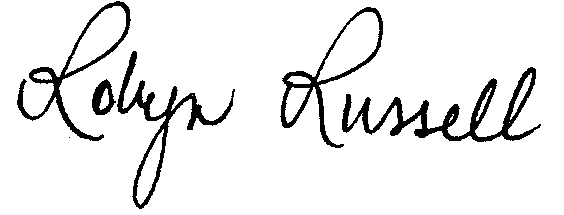 Robyn Russell